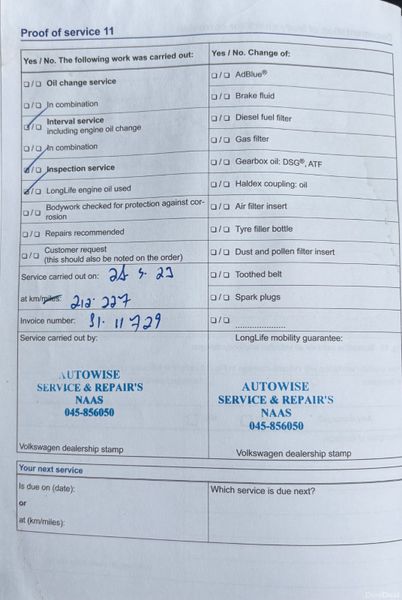 Proof of service 11
Yes / No. The following work was carried out:
❏ / ❏ Oil change service
❏ / ❏ In combination
❏ / ❏ Interval service
including engine oil change
❏ / ❏ In combination
❏ / ❏ Inspection service
❏ / ❏ LongLife engine oil used
❏ / ❏ Bodywork checked for protection against cor-
rosion
❏ / ❏ Repairs recommended
❏ / ❏ Customer request
(this should also be noted on the order)
Service carried out on:
at km/miles: 212.227
Invoice number: 31.11729
Service carried out by:
AUTOWISE
SERVICE & REPAIR'S
NAAS
045-856050
Volkswagen dealership stamp
Yes / No. Change of:
❏ / ❏ AdBlue®
❏ / ❏ Brake fluid
❏ / ❏ Diesel fuel filter
❏ / ❏ Gas filter
❏ / ❏ Gearbox oil: DSG®, ATF
❏ / ❏ Haldex coupling: oil
❏ / ❏ Air filter insert
❏ / ❏ Tyre filler bottle
❏ / ❏ Dust and pollen filter insert
❏ / ❏ Toothed belt
❏ / ❏ Spark plugs
❏ / ❏ ......................
LongLife mobility guarantee:
AUTOWISE
SERVICE & REPAIR'S
NAAS
045-856050
Volkswagen dealership stamp
Your next service
Is due on (date):
or
at (km/miles):
Which service is due next?
DoneDeal